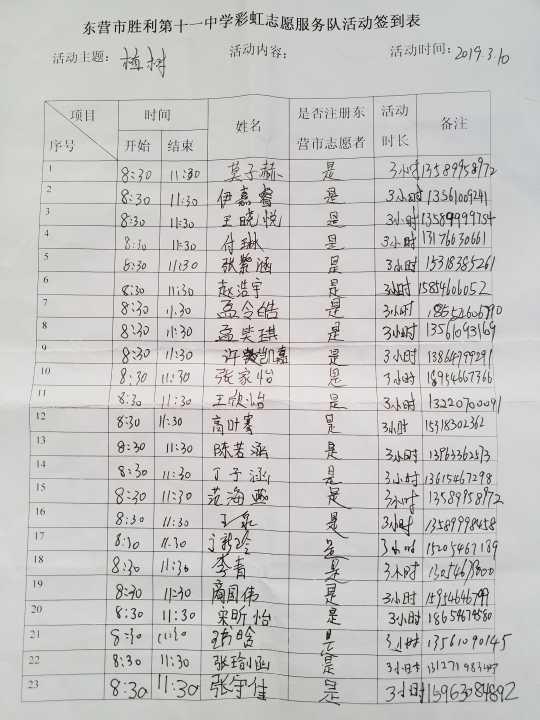 东营市胜利第十一中学彩虹志愿服务队活动签到表
活动主题：植树 活动内容： 活动时间：2019.3.10
项目 时间 姓名 是否注册东 活动 备注
序号 开始 结束 营市志愿者 时长
1 8:30 11:30 莫子赫 是 3小时 13589958972
2 8:30 11:30 伊嘉睿 是 3小时 13561009241
3 8:30 11:30 王晓悦 是 3小时 13589999754
4 8:30 11:30 付琳 是 3小时 13176030661
5 8:30 11:30 张馨涵 是 3小时 15318385261
6 8:30 11:30 赵浩宇 是 3小时 15854606052
7 8:30 11:30 孟令皓 是 3小时
8 8:30 11:30 孟笑琪 是 3小时 13561093169
9 8:30 11:30 许凯嘉 是 3小时 13864799291
10 8:30 11:30 张家怡 是 3小时 18954667366
11 8:30 11:30 王欣怡 是 3小时 13220700091
12 8:30 11:30 高叶骞 是 3小时 15318302362
13 8:30 11:30 陈若涵 是 3小时 13963362573
14 8:30 11:30 丁子涵 是 3小时 13615467298
15 8:30 11:30 范海燕 是 3小时 13589958972
16 8:30 11:30 王泉 是 3小时 13589998458
17 8:30 11:30 是 3小时 15205467189
18 8:30 11:30 李青 是 3小时
19 8:30 11:30 商国伟 是 3小时 15954646799
20 8:30 11:30 宋昕怡 是 3小时 18654674580
21 8:30 11:30 是 3小时 13561090145
22 8:30 11:30 张瑜函 是 3小时
23 8:30 11:30 张守佳 是 3小时 15963084892